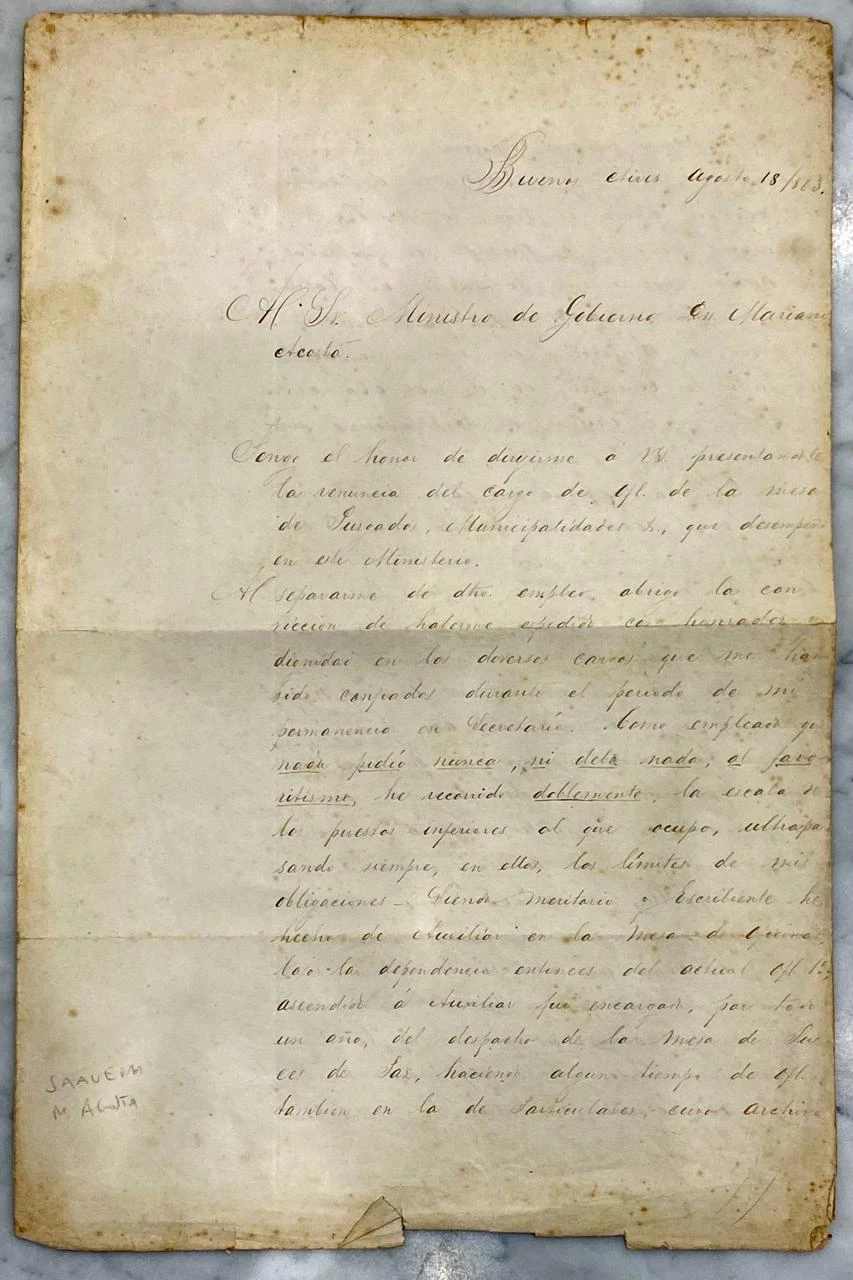 Buenos Aires Agosto 18/863.
Al Sr. Ministro de Gobierno Dn Mariano
Acosta.
Tengo el honor de dirijirme a V.S. presentandole
la renuncia del cargo de Ofl. de la mesa
de Juzgados, Municipalidades &., que desempeño
en este Ministerio.
Al separarme de dho. empleo, abrigo la con
viccion de haberme espedido con honradez y
dignidad en los diversos cargos que me han
sido confiados durante el periodo de mi
permanencia en Secretaría. Como empleado que
nada pidió nunca, ni debe nada, al favo
ritismo, he recorrido doblemente, la escala de
los puestos inferiores al que ocupo, ultrapa
sando siempre, en ellos, los límites de mis
obligaciones - Siendo meritorio y Escribiente he
hecho de Auxiliar en la Mesa de
bajo la dependencia entonces del actual Ofl. 1º;
ascendido á Auxiliar fui encargado, por todo
un año, del despacho de la Mesa de Jue
ces de Paz, haciendo algun tiempo de Ofl.
tambien en la de Particulares, cuyo archivo
SAAVEDRA
M ACOSTA